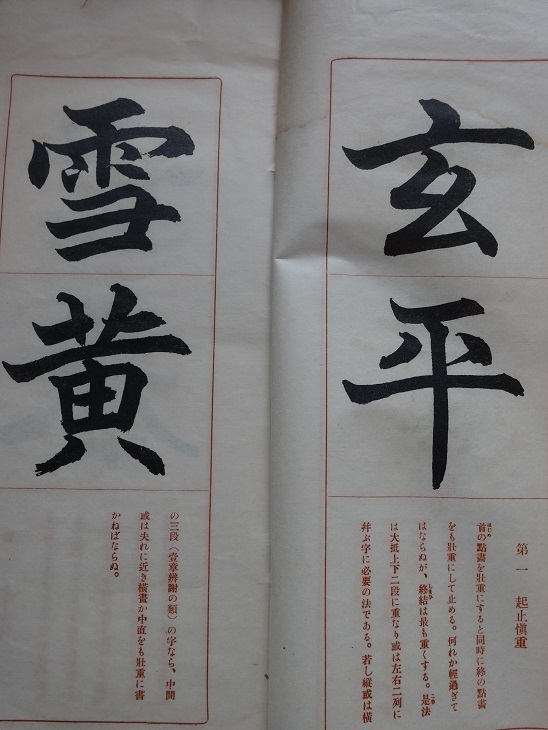 玄
平
第一　起止愼重
首の點畫を壯重にすると同時に終の點畫
をも壯重にして止める。何れか輕過ぎて
はならぬが、終結は最も重くする。是法
は大抵上下二段に重なり或は左右二列に
幷ぶ字に必要の法である。若し縱或は橫
雪
黄
の三段（壹章辨謝の類）の字なら、中間
或は夫れに近き橫畫か中直をも壯重に書
かねばならぬ。